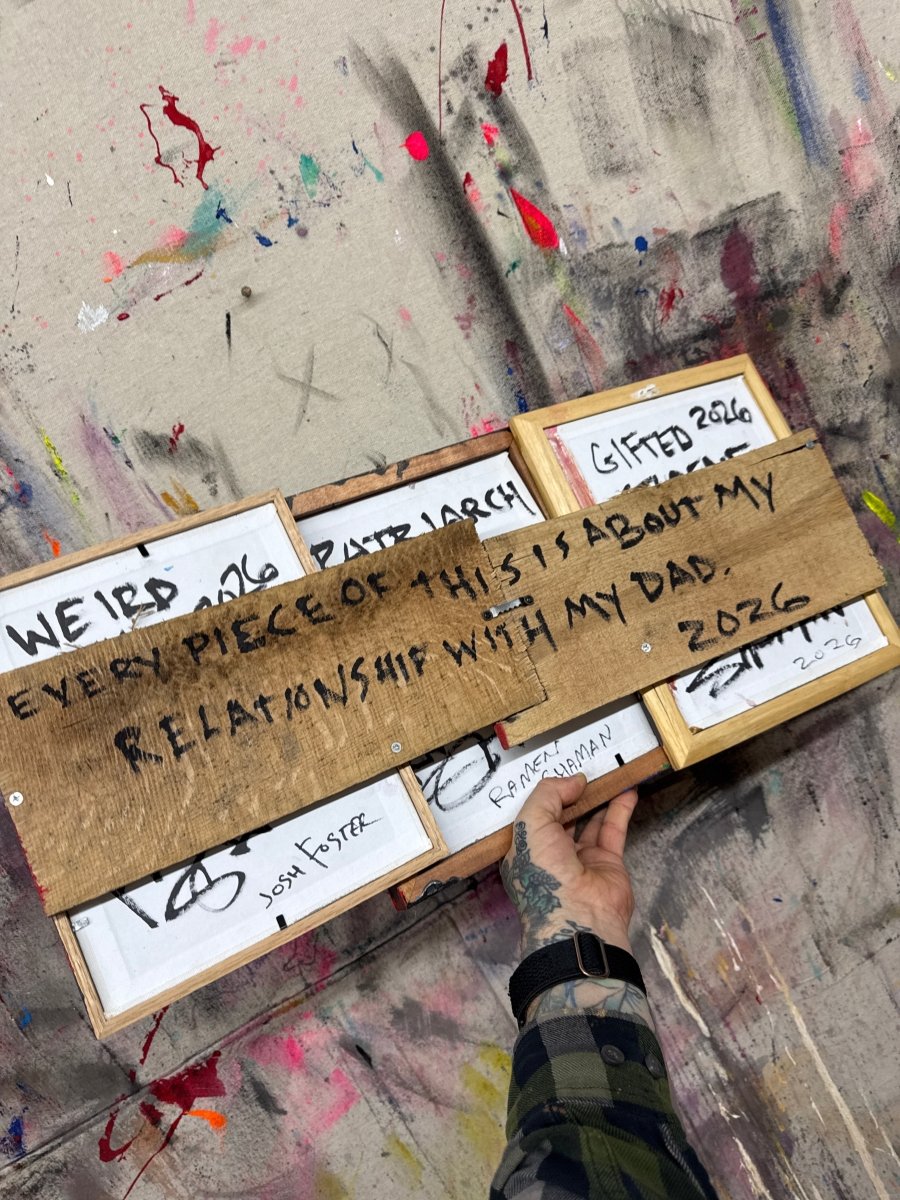 GIFTED 2026
PATRIARCH
WEIRD
2026
EVERY PIECE OF THIS IS ABOUT MY
RELATIONSHIP WITH MY DAD.
2026
2026
RAMEN
SHAMAN
JOSH FOSTER